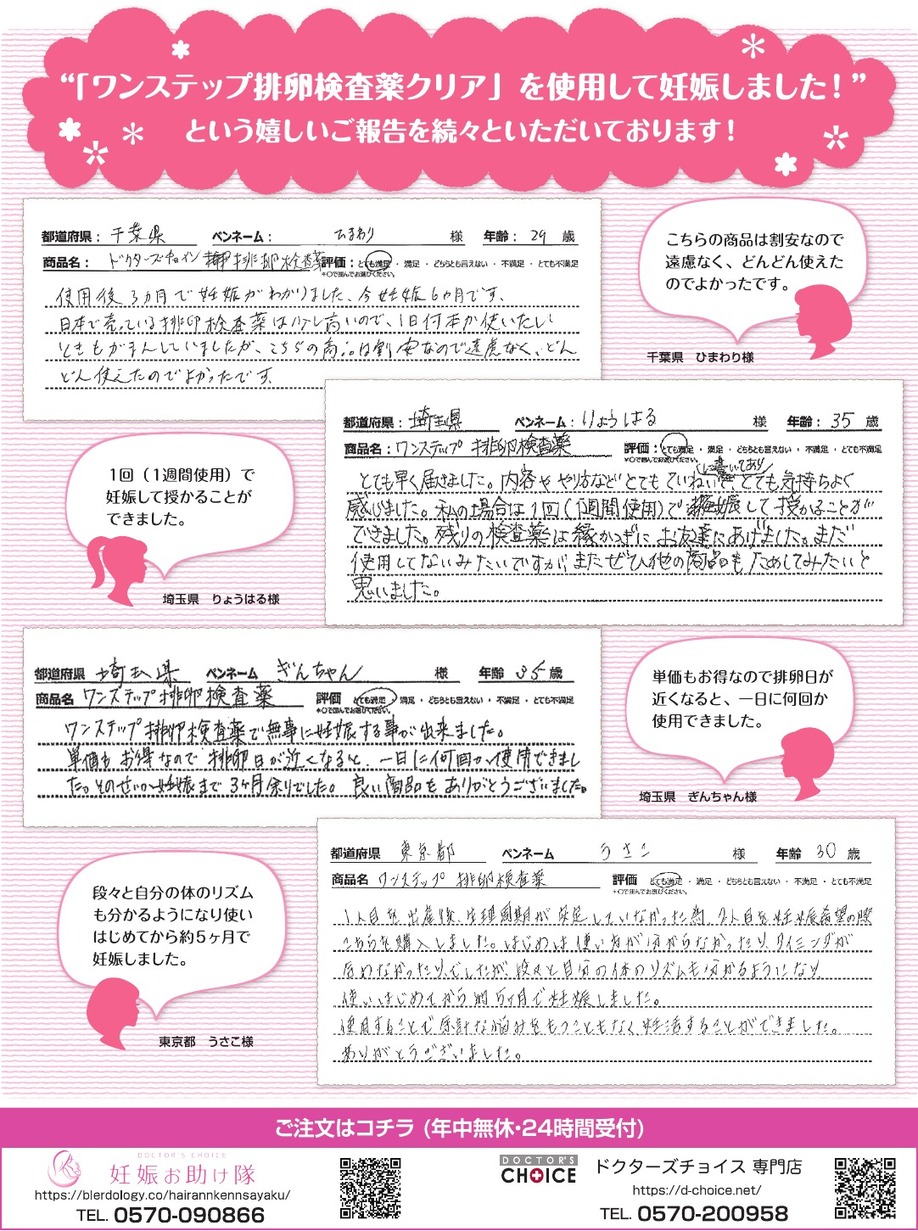 “「ワンステップ排卵検査薬クリア」を使用して妊娠しました！”
という嬉しいご報告を続々といただいております！
都道府県： 千葉県 ペンネーム： ひまわり 様 年齢： 29 歳
商品名： ドクターズチョイス 排卵検査薬 評価： とても満足 ・ 満足 ・ どちらとも言えない ・ 不満足 ・ とても不満足
*○で囲んでお選びください。
使用後3ヵ月で妊娠がわかりました、今妊娠6ヵ月です。
日本で売っている排卵検査薬は少し高いので、1日何本か使いたい
ときもがまんしていましたが、こちらの商品は割安なので遠慮なく、どん
どん使えたのでよかったです。
こちらの商品は割安なので
遠慮なく、どんどん使えた
のでよかったです。
千葉県 ひまわり様
都道府県： 埼玉県 ペンネーム： りょうはる 様 年齢： 35 歳
商品名： ワンステップ 排卵検査薬 評価： とても満足 ・ 満足 ・ どちらとも言えない ・ 不満足 ・ とても不満足
*○で囲んでお選びください。
とても早く届きました。内容ややり方などとてもていねいに書いてあり、とても気持ちよく
感じました。私の場合は1回(1週間使用)で妊娠して授かることが
できました。残りの検査薬は縁かつぎにお友達にあげました。まだ
使用してないみたいですが、またぜひ他の商品もためしてみたいと
思いました。
1回（1週間使用）で
妊娠して授かることが
できました。
埼玉県 りょうはる様
都道府県 埼玉県 ペンネーム ぎんちゃん 様 年齢 35 歳
商品名 ワンステップ排卵検査薬 評価 とても満足 ・ 満足 ・ どちらとも言えない ・ 不満足 ・ とても不満足
*○で囲んでお選びください。
ワンステップ排卵検査薬で無事に妊娠する事が出来ました。
単価もお得なので排卵日が近くなると、一日に何回か使用できまし
た。そのせいか妊娠まで3ヶ月余りでした。良い商品をありがとうございました。
単価もお得なので排卵日が
近くなると、一日に何回か
使用できました。
埼玉県 ぎんちゃん様
都道府県 東京都 ペンネーム うさこ 様 年齢 30 歳
商品名 ワンステップ 排卵検査薬 評価 とても満足 ・ 満足 ・ どちらとも言えない ・ 不満足 ・ とても不満足
*○で囲んでお選びください。
1人目を出産後、生理周期が安定していなかった為、2人目を妊娠希望の際
こちらを購入しました。はじめは使い方が分からなかったり、タイミングが
合わなかったりでしたが、段々と自分の体のリズムも分かるようになり
使いはじめてから約5ヶ月で妊娠しました。
使用することで余計な悩みをもつこともなく妊活することができました。
ありがとうございました。
段々と自分の体のリズム
も分かるようになり使い
はじめてから約5ヶ月で
妊娠しました。
東京都 うさこ様
ご注文はコチラ (年中無休・24時間受付)
DOCTOR'S CHOICE
妊娠お助け隊
https://blerdology.co/hairannkennsayaku/
TEL. 0570-090866
DOCTOR'S CHOICE
ドクターズチョイス 専門店
https://d-choice.net/
TEL. 0570-200958